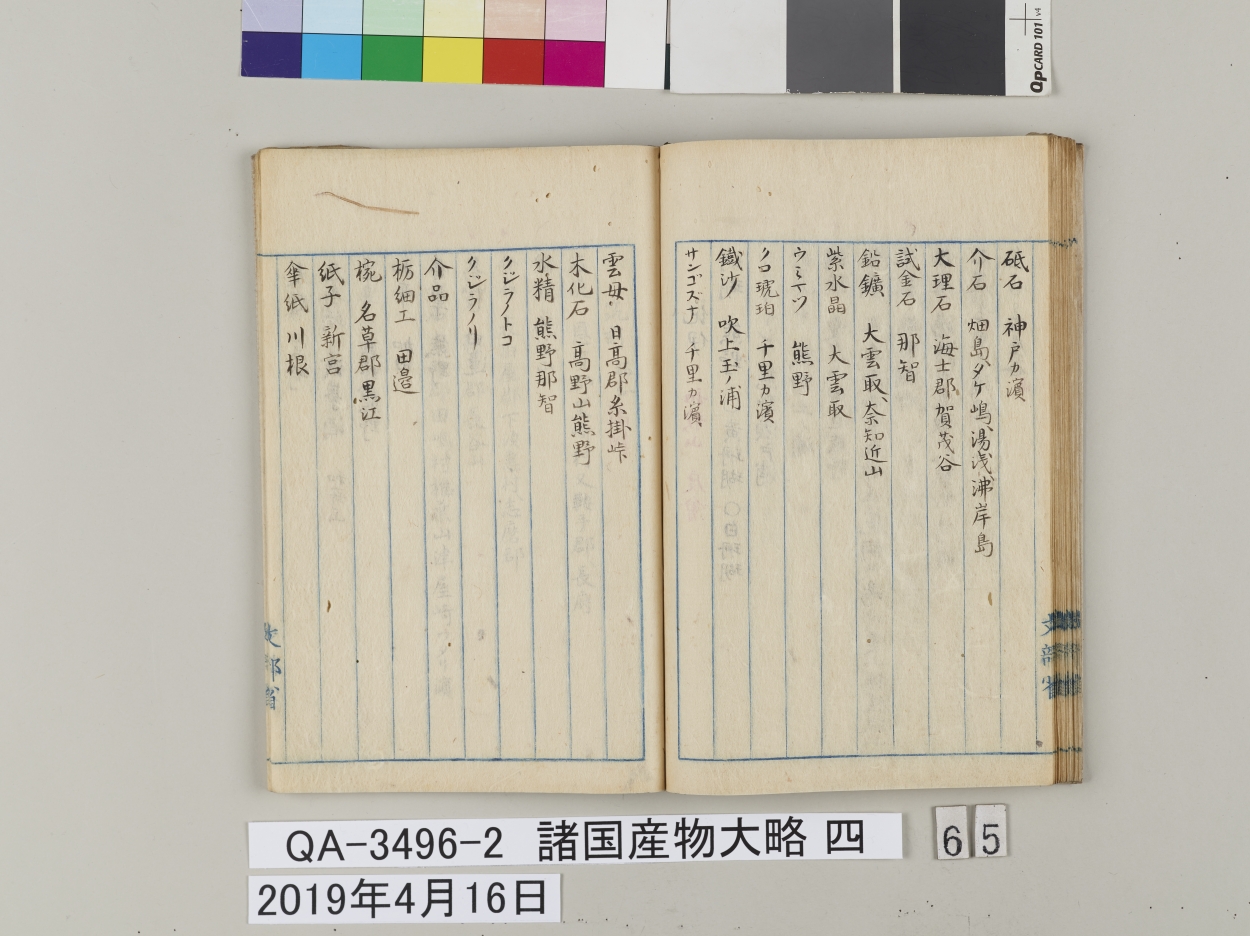 QpCARD 101 v4
砥石　神戸カ濱
介石　畑島、タケ嶋、湯浅、沸岸島
大理石　海士郡賀茂谷
試金石　那智
鉛鑛　大雲取、奈知近山
紫水晶　大雲取
ウミマツ　熊野
クロ琥珀　千里カ濱
鐵沙　吹上玉ノ浦
サンゴズナ　千里カ濱
文部省
雲母　日高郡糸掛峠
木化石　高野山熊野
水精　熊野那智
クジラノトコ
クジラノリ
介品
栃細工　田邉
椀　名草郡黒江
紙子　新宮
傘紙　川根
文部省
QA-3496-2 諸国産物大略 四
65
2019年4月16日